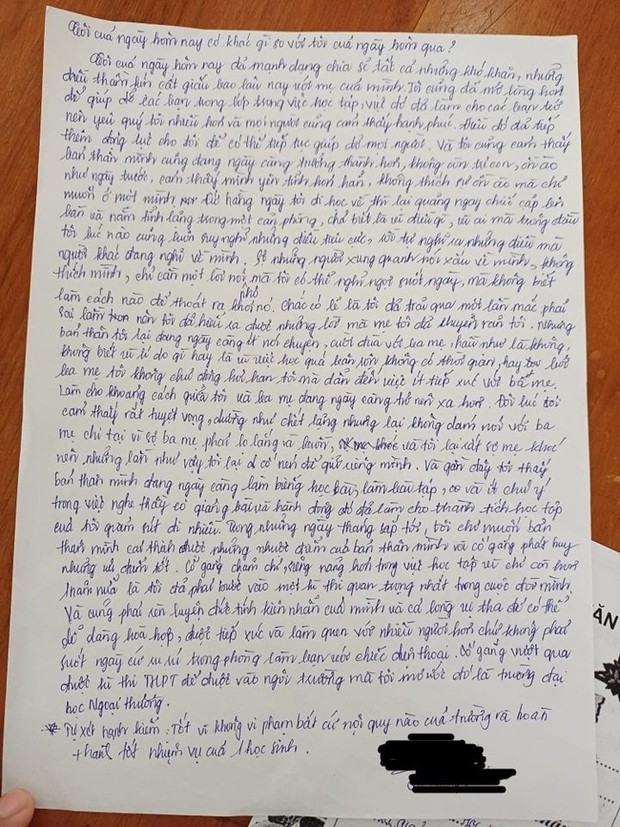 Tôi của ngày hôm nay có khác gì so với tôi của ngày hôm qua?
Tôi của ngày hôm nay đã mạnh dạng chia sẻ tất cả những khó khăn, những
điều thầm kín cất giấu bao lâu nay với mẹ của mình. Tôi cũng đã mở lòng hơn
để giúp đỡ các bạn trong lớp trong việc học tập, việc đó đã làm cho các bạn trở
nên yêu quý tôi nhiều hơn và mọi người cũng cảm thấy hạnh phúc. Điều đó đã tiếp
thêm động lực cho tôi để có thể tiếp tục giúp đỡ mọi người. Và tôi cũng cảm thấy
bản thân mình cũng đang ngày càng trưởng thành hơn, không còn trẻ con, ồn ào
như ngày trước, cảm thấy mình yên tĩnh hơn hẳn, không thích sự ồn ào mà chỉ
muốn ở một mình. Cứ hằng ngày tôi đi học về thì lại quăng ngay chiếc cặp lên
bàn và nằm tĩnh lặng trong một căn phòng, chả biết là vì điều gì, vì ai mà trong đầu
tôi lúc nào cũng luôn suy nghĩ những điều tiêu cực, rồi tự nghĩ ra những điều mà
người khác đang nghĩ về mình. Sợ những người xung quanh nói xấu về mình, không
thích mình, chỉ cần một lời nói nhỏ mà tôi có thể nghĩ ngợi suốt ngày, mà không biết
làm cách nào để thoát ra khỏi nó. Chắc có lẽ là tôi đã trải qua một lần mắc phải
sai lầm trọn nên tôi đã hiểu ra được những lời mà mẹ tôi đã khuyên răn tôi. Nhưng
bản thân tôi lại đang ngày càng ít nói chuyện, cười đùa với ba mẹ, hầu như là không,
không biết vì lí do gì hay là vì việc học quá bận rộn không có thời gian, hay
ba mẹ tôi không chủ động hỏi han tôi mà dẫn đến việc ít tiếp xúc với bố mẹ.
Làm cho khoảng cách giữa tôi và ba mẹ đang ngày càng trở nên xa hơn. Đôi lúc tôi
cảm thấy rất tuyệt vọng, dường như chết lặng nhưng lại không dám nói với ba
mẹ chỉ tại vì sợ ba mẹ phải lo lắng và buồn, và tôi lại rất sợ mẹ khóc
nên những lần như vậy tôi lại cố nén để giữ riêng mình. Và gần đây tôi thấy
bản thân mình đang ngày càng làm biếng học bài, làm bài tập, và ít chú ý
trong việc nghe thầy cô giảng bài và hành động đó đã làm cho thành tích học tập
của tôi giảm sút đi nhiều. Trong những ngày tháng sắp tới, tôi chỉ muốn bản
thân mình cải thiện được những nhược điểm của bản thân mình và cố gắng phát huy
những ưu điểm tốt. Cố gắng chăm chỉ, siêng năng hơn trong việc học tập vì chỉ còn hơn
1 năm nữa là tôi đã phải bước vào một kì thi quan trọng nhất trong cuộc đời mình.
Và cũng phải rèn luyện đức tính kiên nhẫn của mình và cả lòng vị tha để có thể
dễ dàng hoà hợp, được tiếp xúc và làm quen với nhiều người hơn chứ không phải
suốt ngày cứ ru rú trong phòng làm bạn với chiếc điện thoại. Cố gắng vượt qua
được kì thi THPT để được vào ngôi trường mà tôi mơ ước đó là trường đại
học Ngoại thương.
* Tự xét hạnh kiểm: Tốt vì không vi phạm bất cứ nội quy nào của trường và hoàn
thành tốt nhiệm vụ của 1 học sinh.
ĂN